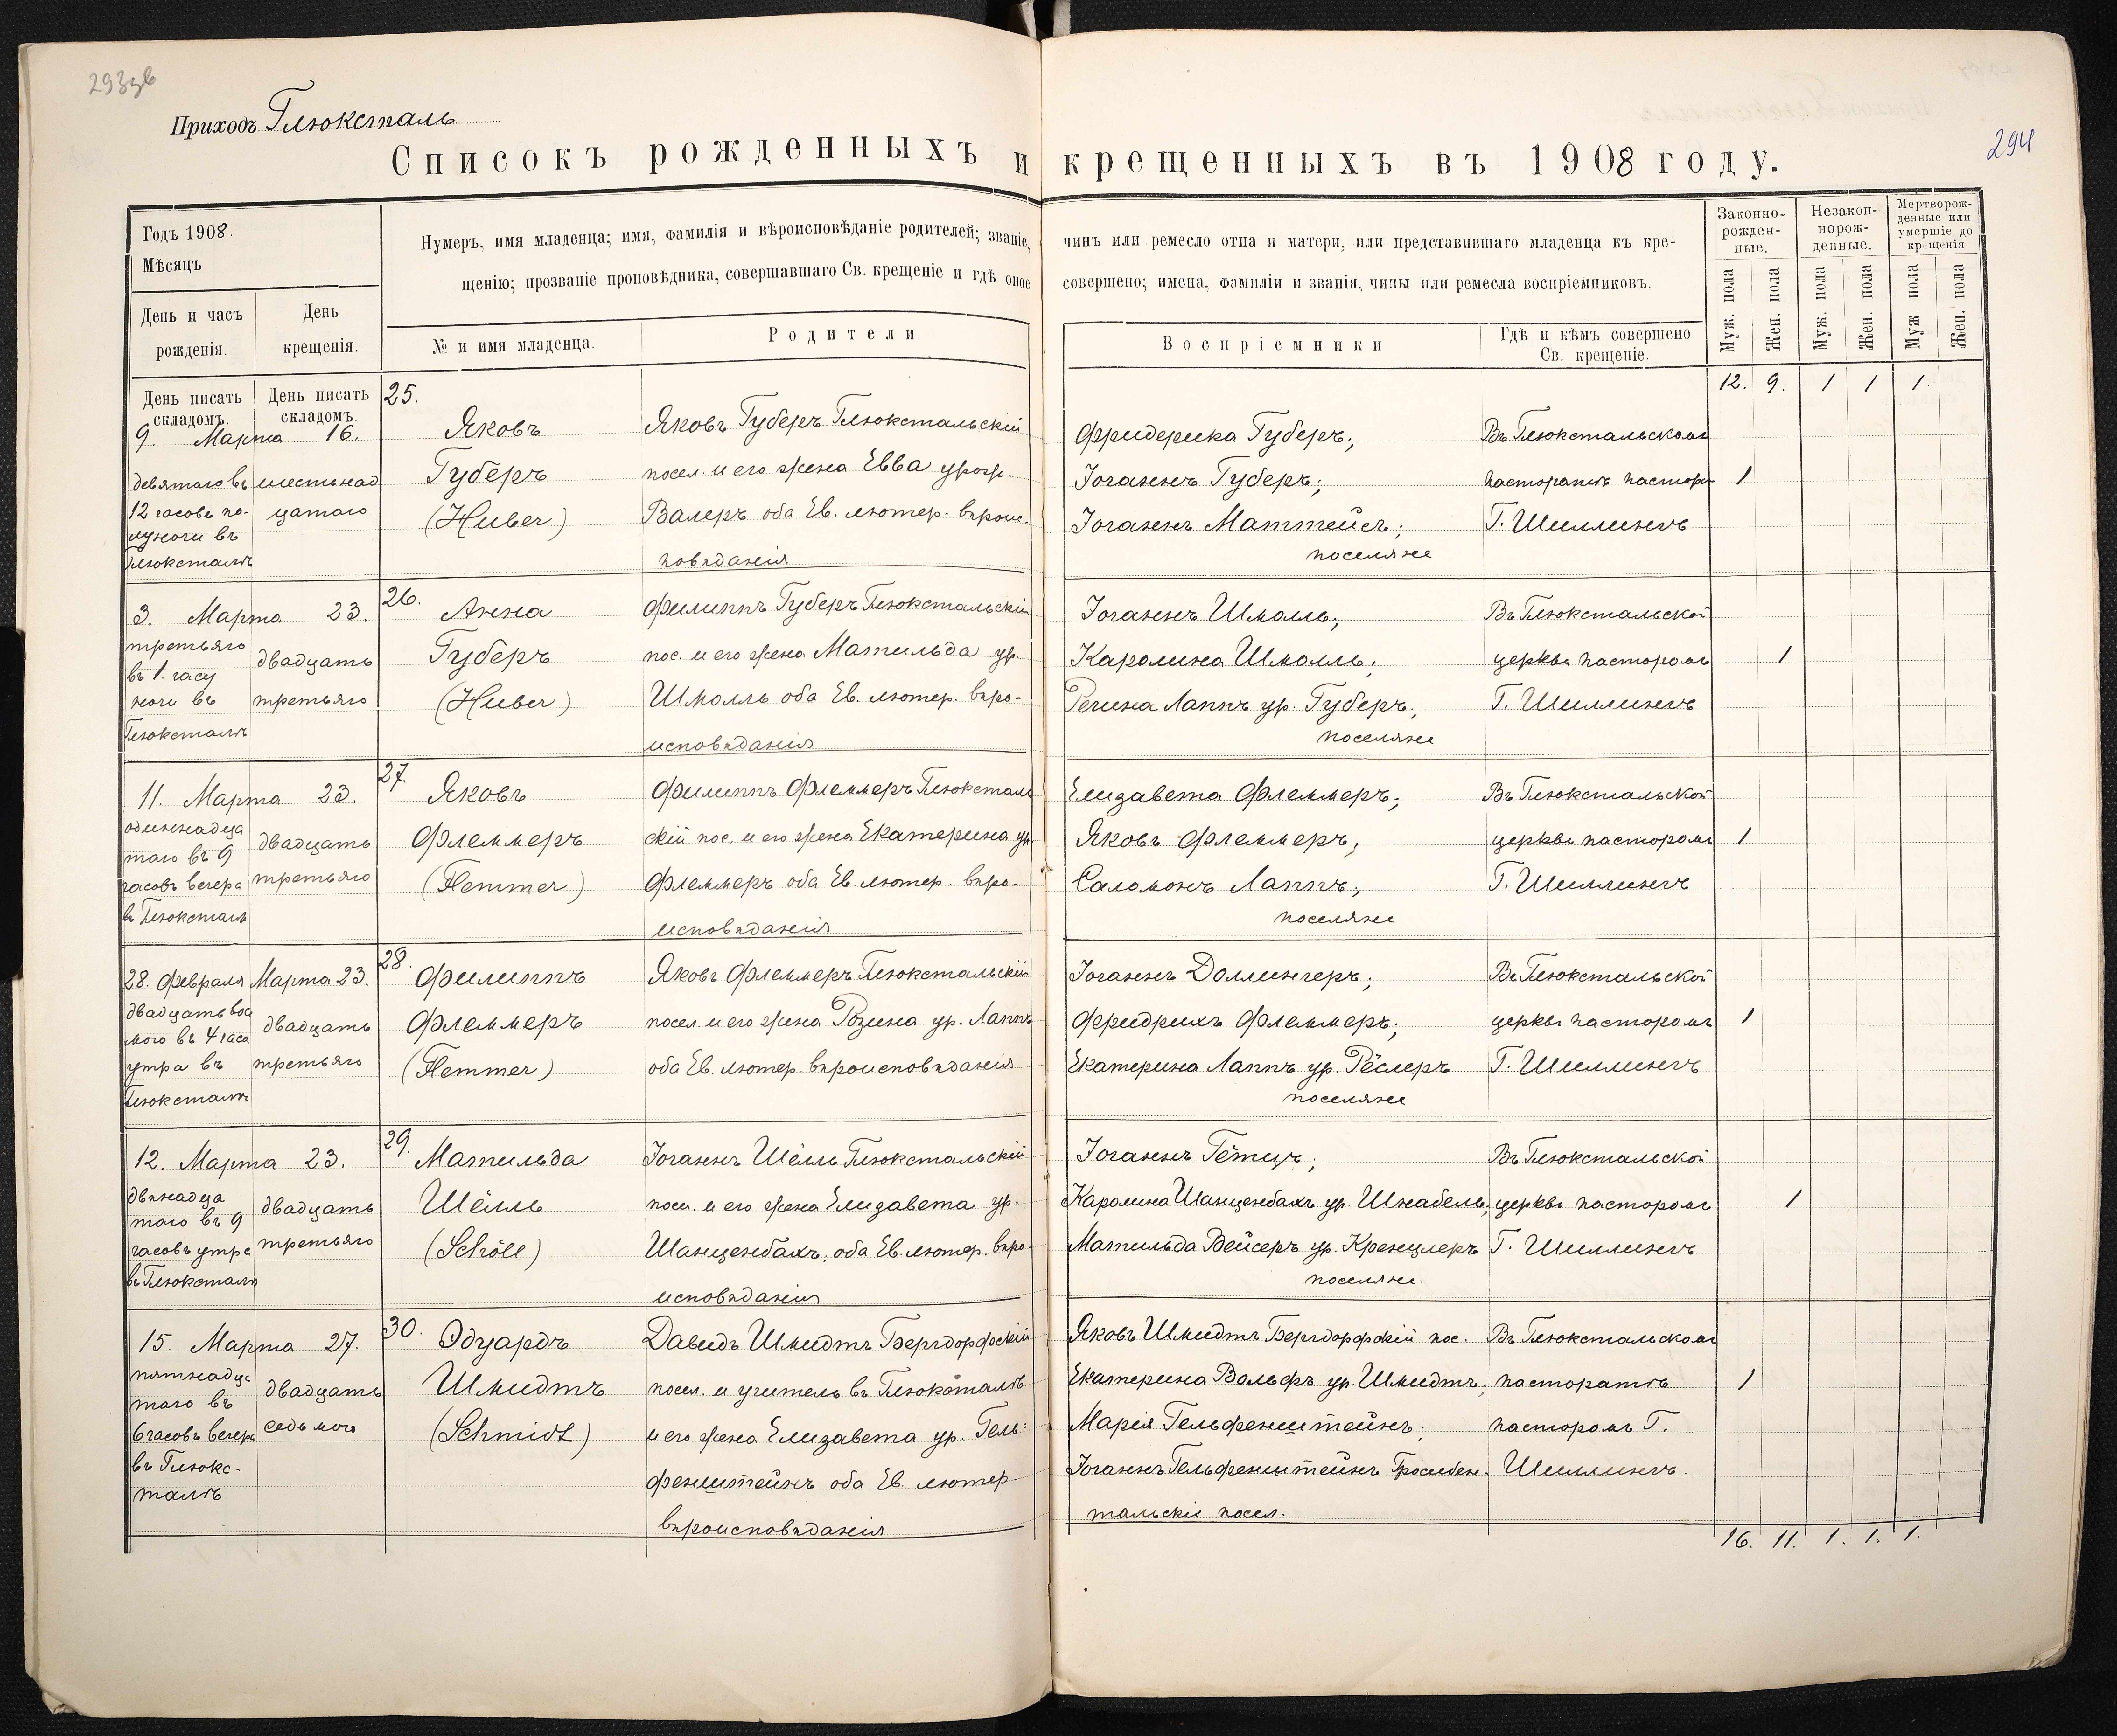 293зв
294
Приходъ Глюксталь
Списокъ рожденныхъ и крещенныхъ въ 1908 году.
Годъ 1908.
Мѣсяцъ
День и часъ рожденія.
День крещенія.
Нумеръ, имя младенца; имя, фамилія и вѣроисповѣданіе родителей; званіе, чинъ или ремесло отца и матери, или представившаго младенца къ кре-
щенію; прозваніе проповѣдника, совершавшаго Св. крещеніе и гдѣ оное совершено; имена, фамиліи и званія, чины или ремесла воспріемниковъ.
№ и имя младенца.
Родители
Воспріемники
Гдѣ и кѣмъ совершено
Св. крещеніе.
Законно-
рожден-
ные.
Незакон-
норож-
денные.
Мертворож-
денные или
умершіе до
крщенія
Муж. пола
Жен. пола
Муж. пола
Жен. пола
Муж пола
Жен. пола
День писать
складомъ.
День писать
складомъ.
12. 9. 1 1 1.
25.
9. Марта 16.
девятаго въ
12 часовъ по-
луночи въ
Глюксталѣ
шестьнад
цатаго
Яковъ
Губеръ
(Huber)
Яковъ Губеръ Глюкстальскій
посел. и его жена Евва урож.
Валеръ оба Ев. лютер. вѣроис-
повѣданія
Фридерика Губеръ;
Іоганнъ Губеръ;
Іоганнъ Маттейсъ;
поселяне
Въ Глюкстальскомъ
пасторатѣ пастор
Г. Шиллингъ
1
26.
3. Марта 23.
третьяго
въ 1. часу
ночи въ
Глюксталѣ
двадцать
третьяго
Анна
Губеръ
(Huber)
Филиппъ Губеръ Глюкстальскій
пос. и его жена Матильда ур.
Шмолль оба Ев. лютер. вѣро-
исповѣданія
Іоганнъ Шмолль;
Каролина Шмолль;
Регина Лаппъ ур. Губеръ;
поселяне
Въ Глюкстальской
церкви пасторомъ
Г. Шиллингъ
1
27.
11. Марта 23.
одиннадца
таго въ 9
часовъ вечера
въ Глюксталѣ
двадцать
третьяго
Яковъ
Флеммеръ
(Flemmer)
Филиппъ Флеммеръ Глюксталь
скій пос. и его жена Екатерина ур
Флеммеръ оба Ев. лютер. вѣро-
исповѣданія
Елизавета Флеммеръ;
Яковъ Флеммеръ;
Саломонъ Лаппъ;
поселяне
Въ Глюкстальской
церкви пасторомъ
Г. Шиллингъ
1
28.
28. Февраля
двадцать вось
мого въ 4 часа
утра въ
Глюксталѣ
Марта 23.
двадцать
третьяго
Филиппъ
Флеммеръ
(Flemmer)
Яковъ Флеммеръ Глюкстальскій
посел. и его жена Розина ур. Лаппъ
оба Ев. лютер. вѣроисповѣданія
Іоганнъ Доллингеръ;
Фридрихъ Флеммеръ;
Екатерина Лаппъ ур. Рёслеръ
поселяне
Въ Глюкстальской
церкви пасторомъ
Г. Шиллингъ
1
29.
12. Марта 23.
двѣнадца
таго въ 9
часовъ утра
въ Глюксталѣ
двадцать
третьяго
Матильда
Шёлль
(Schöll)
Іоганнъ Шёлль Глюкстальскій
посл. и его жена Елизавета ур.
Шанценбахъ. оба Ев. лютер. вѣро-
исповѣданія
Іоганнъ Гётцъ;
Каролина Шанценбахъ ур. Шнабель;
Матильда Вейсеръ ур. Кренцлеръ
поселяне.
Въ Глюкстальской
церкви пасторомъ
Г. Шиллингъ
1
30.
15. Марта 27.
пятнадца
таго въ
6 часовъ вечера
въ Глюкс-
талѣ
двадцать
седьмого
Эдуардъ
Шмидтъ
(Schmidt)
Давидъ Шмидтъ Бергдорфскій
посел. и учитель въ Глюксталѣ
и его жена Елизавета ур. Гель-
фенштейнъ оба Ев. лютер.
вѣроисповѣданія
Яковъ Шмидтъ Бергдорфскій пос.
Екатерина Вольфъ ур. Шмидтъ;
Марія Гельфенштейнъ;
Іоганнъ Гельфенштейнъ Гросслибен-
тальскіе посел.
Въ Глюкстальскомъ
пасторатѣ
пасторомъ Г.
Шиллингъ.
1
16. 11. 1. 1. 1.